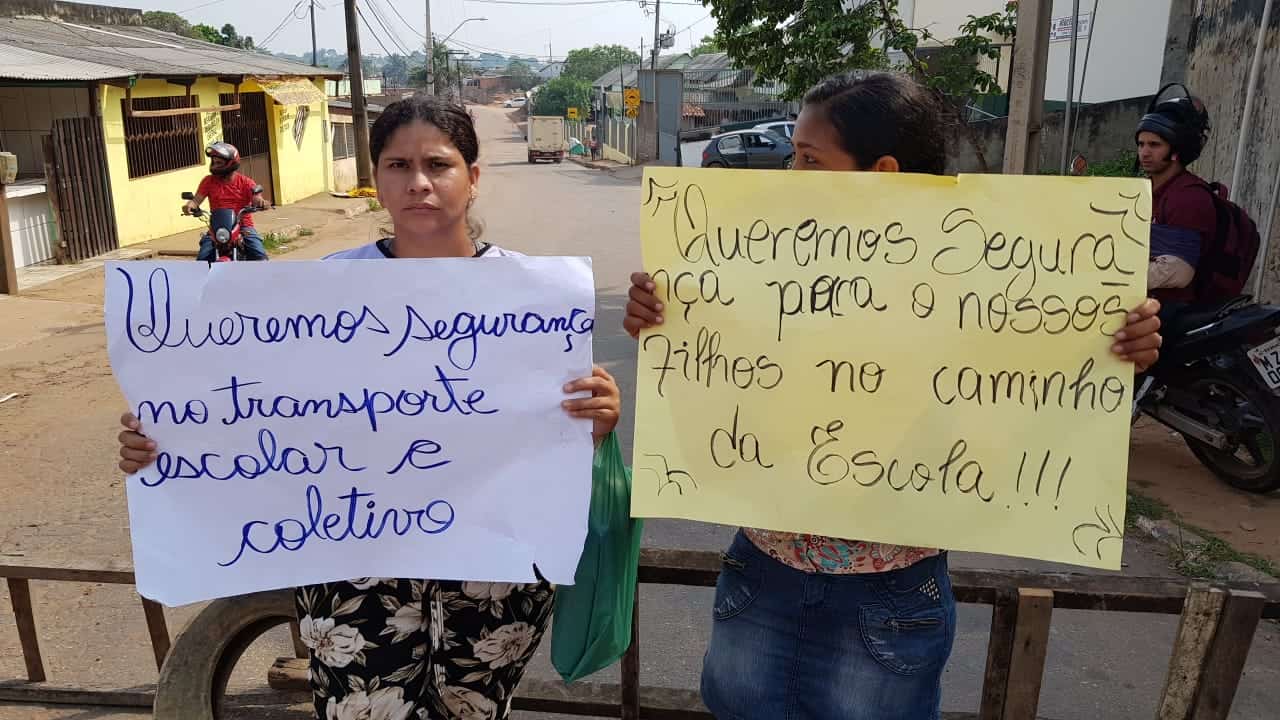 Queremos segurança
no transporte
escolar e
coletivo
Queremos Segura
nça para o nossos
filhos no caminho
da Escola!!!